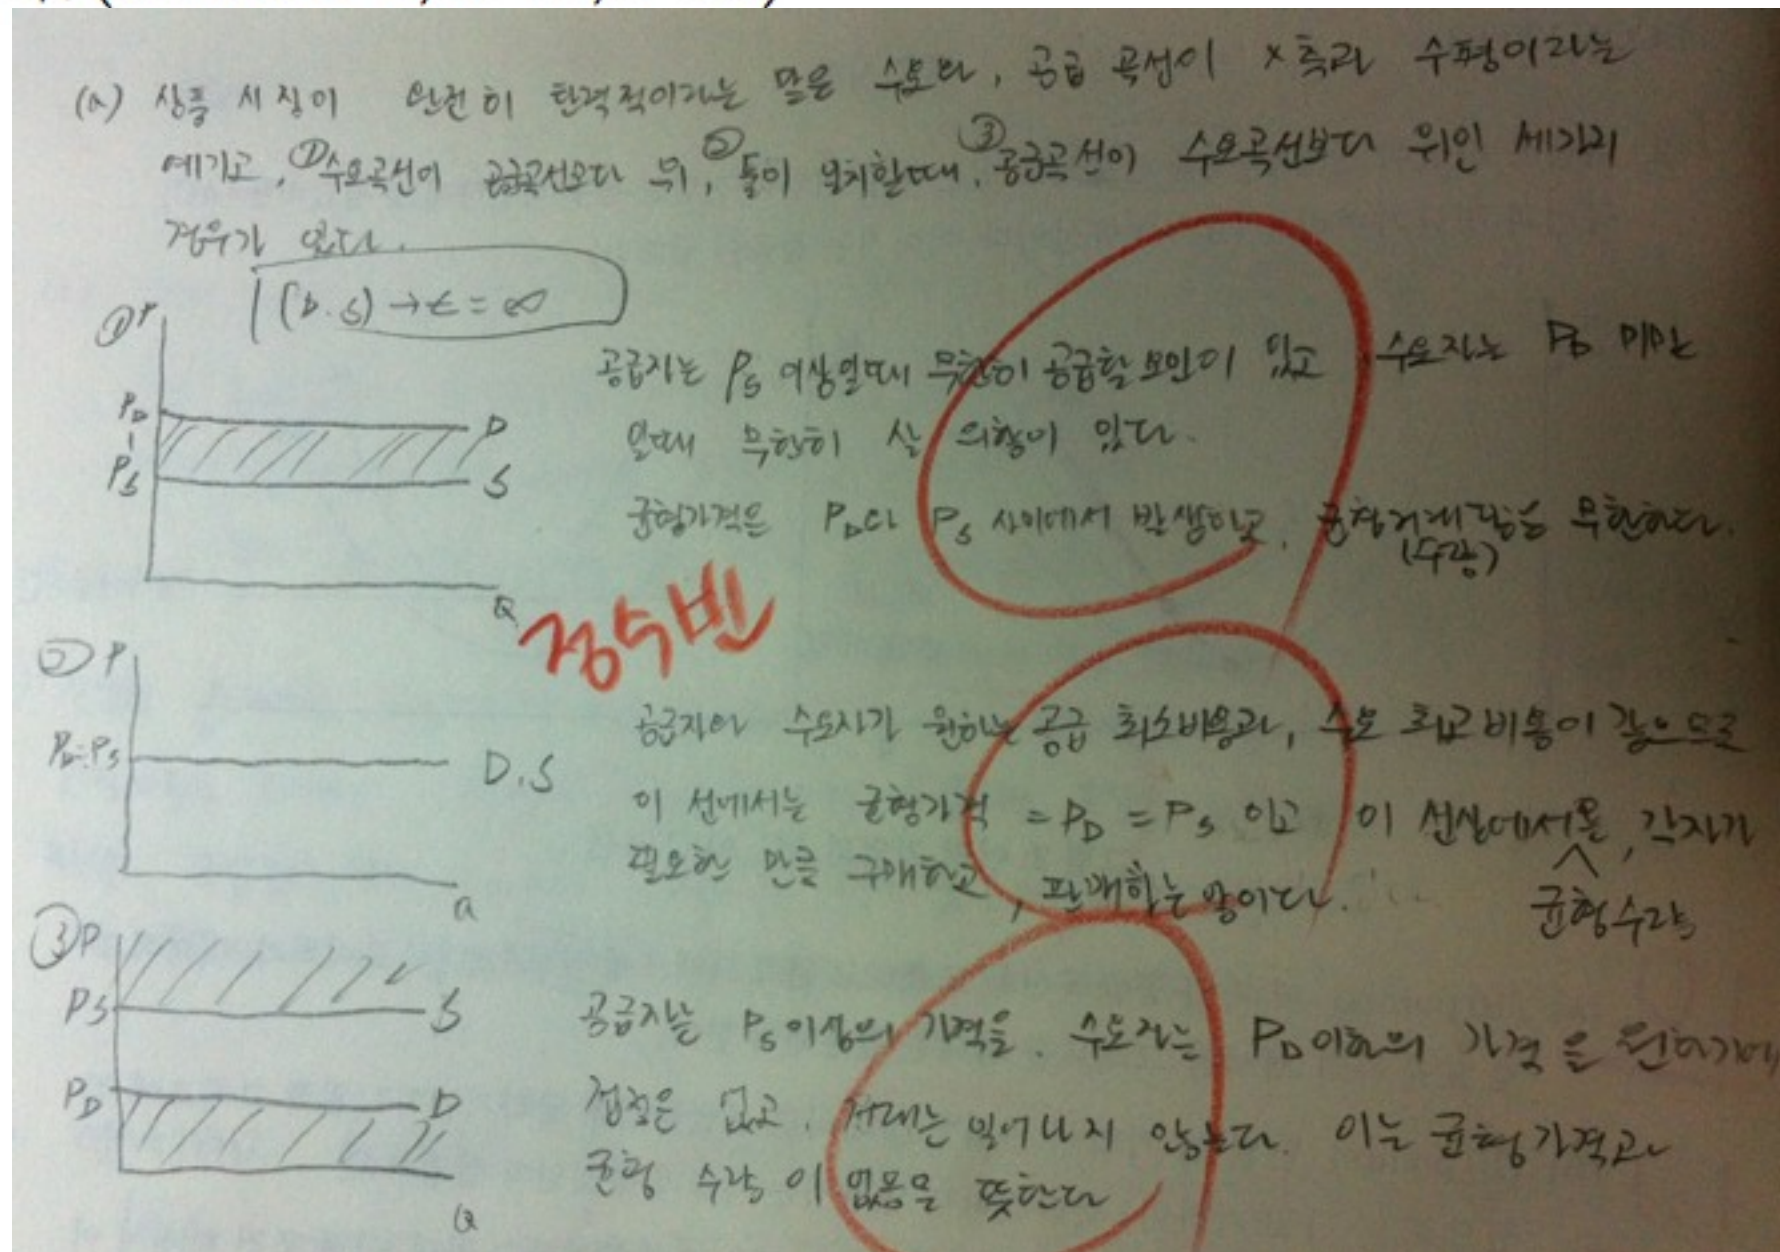 (a) 상품 시장이 완전히 탄력적이라는 말은 수요와, 공급 곡선이 x축과 수평이라는
얘기고, ①수요곡선이 공급곡선보다 위, ②둘이 일치할때, ③공급곡선이 수요곡선보다 위인 세가지
경우가 있다.
(D.S) → ε = ∞
① P
P_D
P_S
D
S
Q
공급자는 P_S 이상일때 무한히 공급할 요인이 있고, 수요자는 P_D 미만
일때 무한히 살 의향이 있다.
균형가격은 P_D와 P_S 사이에서 발생하고, 균형거래량은 무한하다.
(수량)
정수빈
② P
P_D=P_S
D.S
Q
공급자와 수요자가 원하는 공급 최소비용과, 수요 최고비용이 같으므로
이 선에서는 균형가격 = P_D = P_S 이고 이 선상에서, 각자가
균형수량
필요한 만큼 구매하고, 판매하는 양이다.
③ P
P_S
S
P_D
D
Q
공급자는 P_S이상의 가격을, 수요자는 P_D이하의 가격을 원하기에
접점은 없고, 거래는 일어나지 않는다. 이는 균형가격과
균형 수량이 없음을 뜻한다